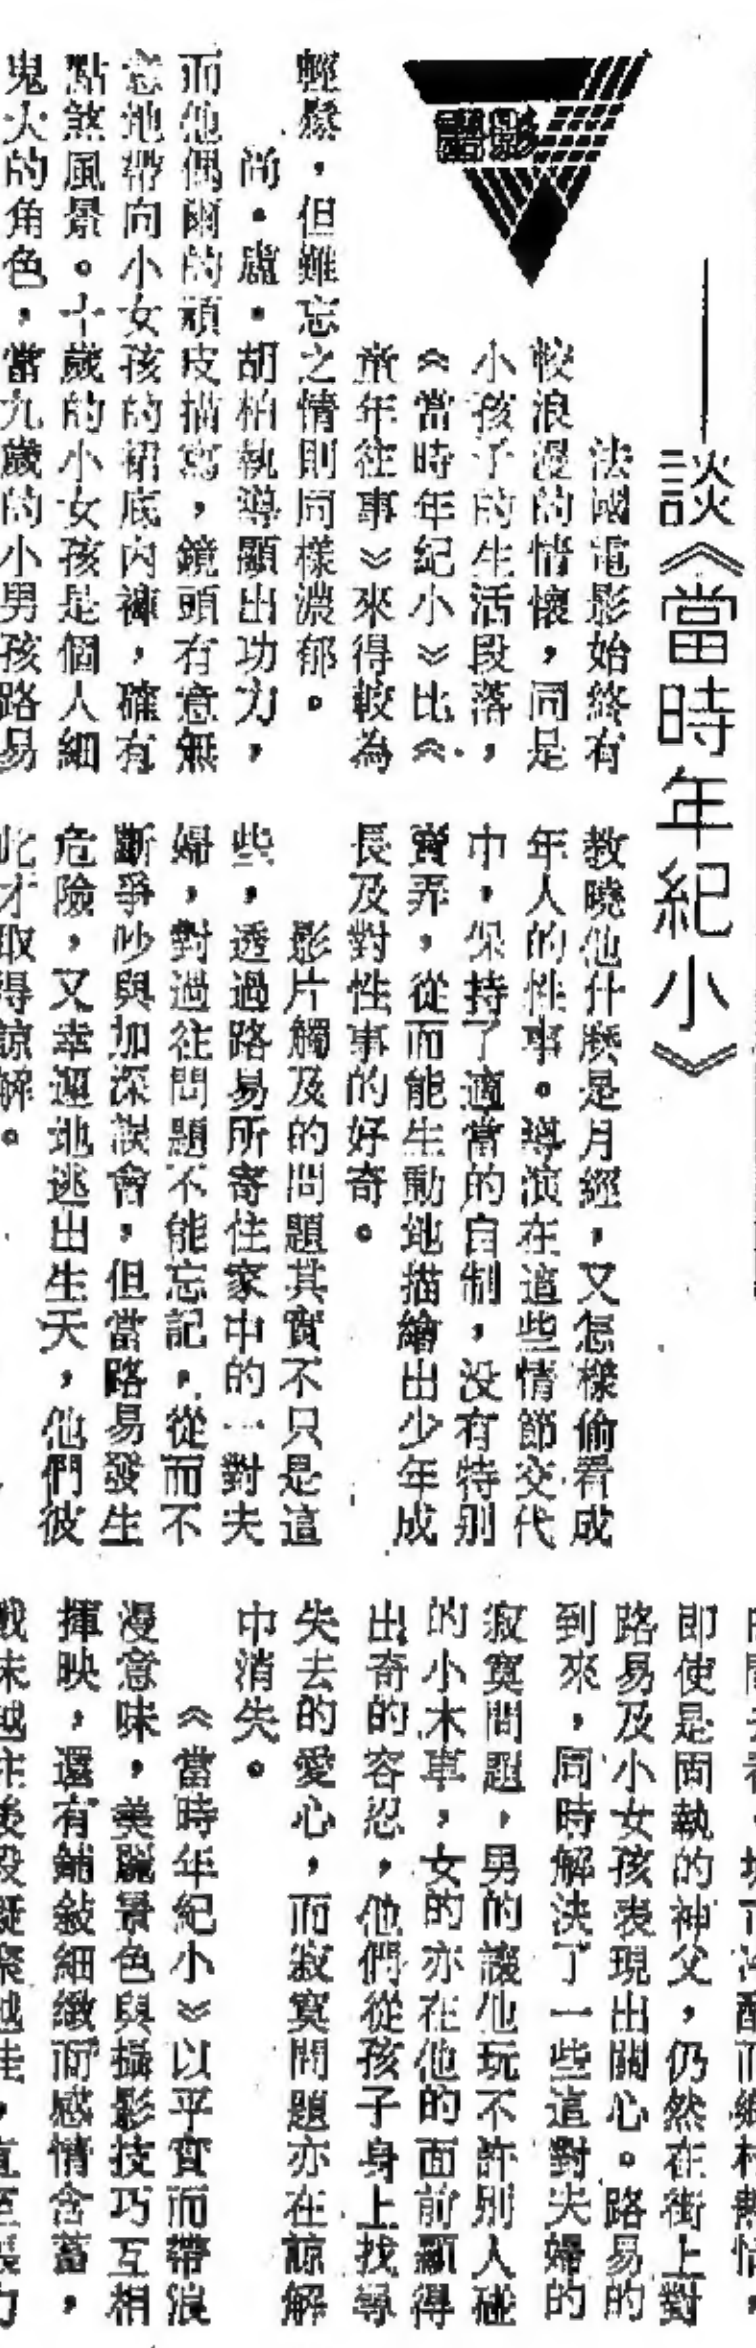 談《當時年紀小》
影
法國電影始終有
較浪漫的情懷，同是
小孩子的生活段落，
《當時年紀小》比《
童年往事》來得較為
輕鬆，但難忘之情則同樣濃郁。
尚・盧・胡柏執導顯出功力，
而他偶爾的頑皮描寫，鏡頭有意無
意地帶向小女孩的裙底內褲，確有
點煞風景。十歲的小女孩是個人細
鬼大的角色，當九歲的小男孩路易
教曉他什麼是月經，又怎樣偷看成
年人的性事。導演在這些情節交代
中，保持了適當的自制，沒有特別
賣弄，從而能生動地描繪出少年成
長及對性事的好奇。
影片觸及的問題其實不只是這
些，透過路易所寄住家中的一對夫
婦，對過往問題不能忘記，從而不
斷爭吵與加深誤會，但當路易發生
危險，又幸運地逃出生天，他們彼
此才取得諒解。
即使是固執的神父，仍然在街上對
路易及小女孩表現出關心。路易的
到來，同時解決了一些這對夫婦的
寂寞問題，男的讓他玩不許別人碰
的小木車，女的亦在他的面前顯得
出奇的容忍，他們從孩子身上找尋
失去的愛心，而寂寞問題亦在諒解
中消失。
《當時年紀小》以平實而帶浪
漫意味，美麗景色與攝影技巧互相
揮映，還有鋪敍細緻而感情含蓄，